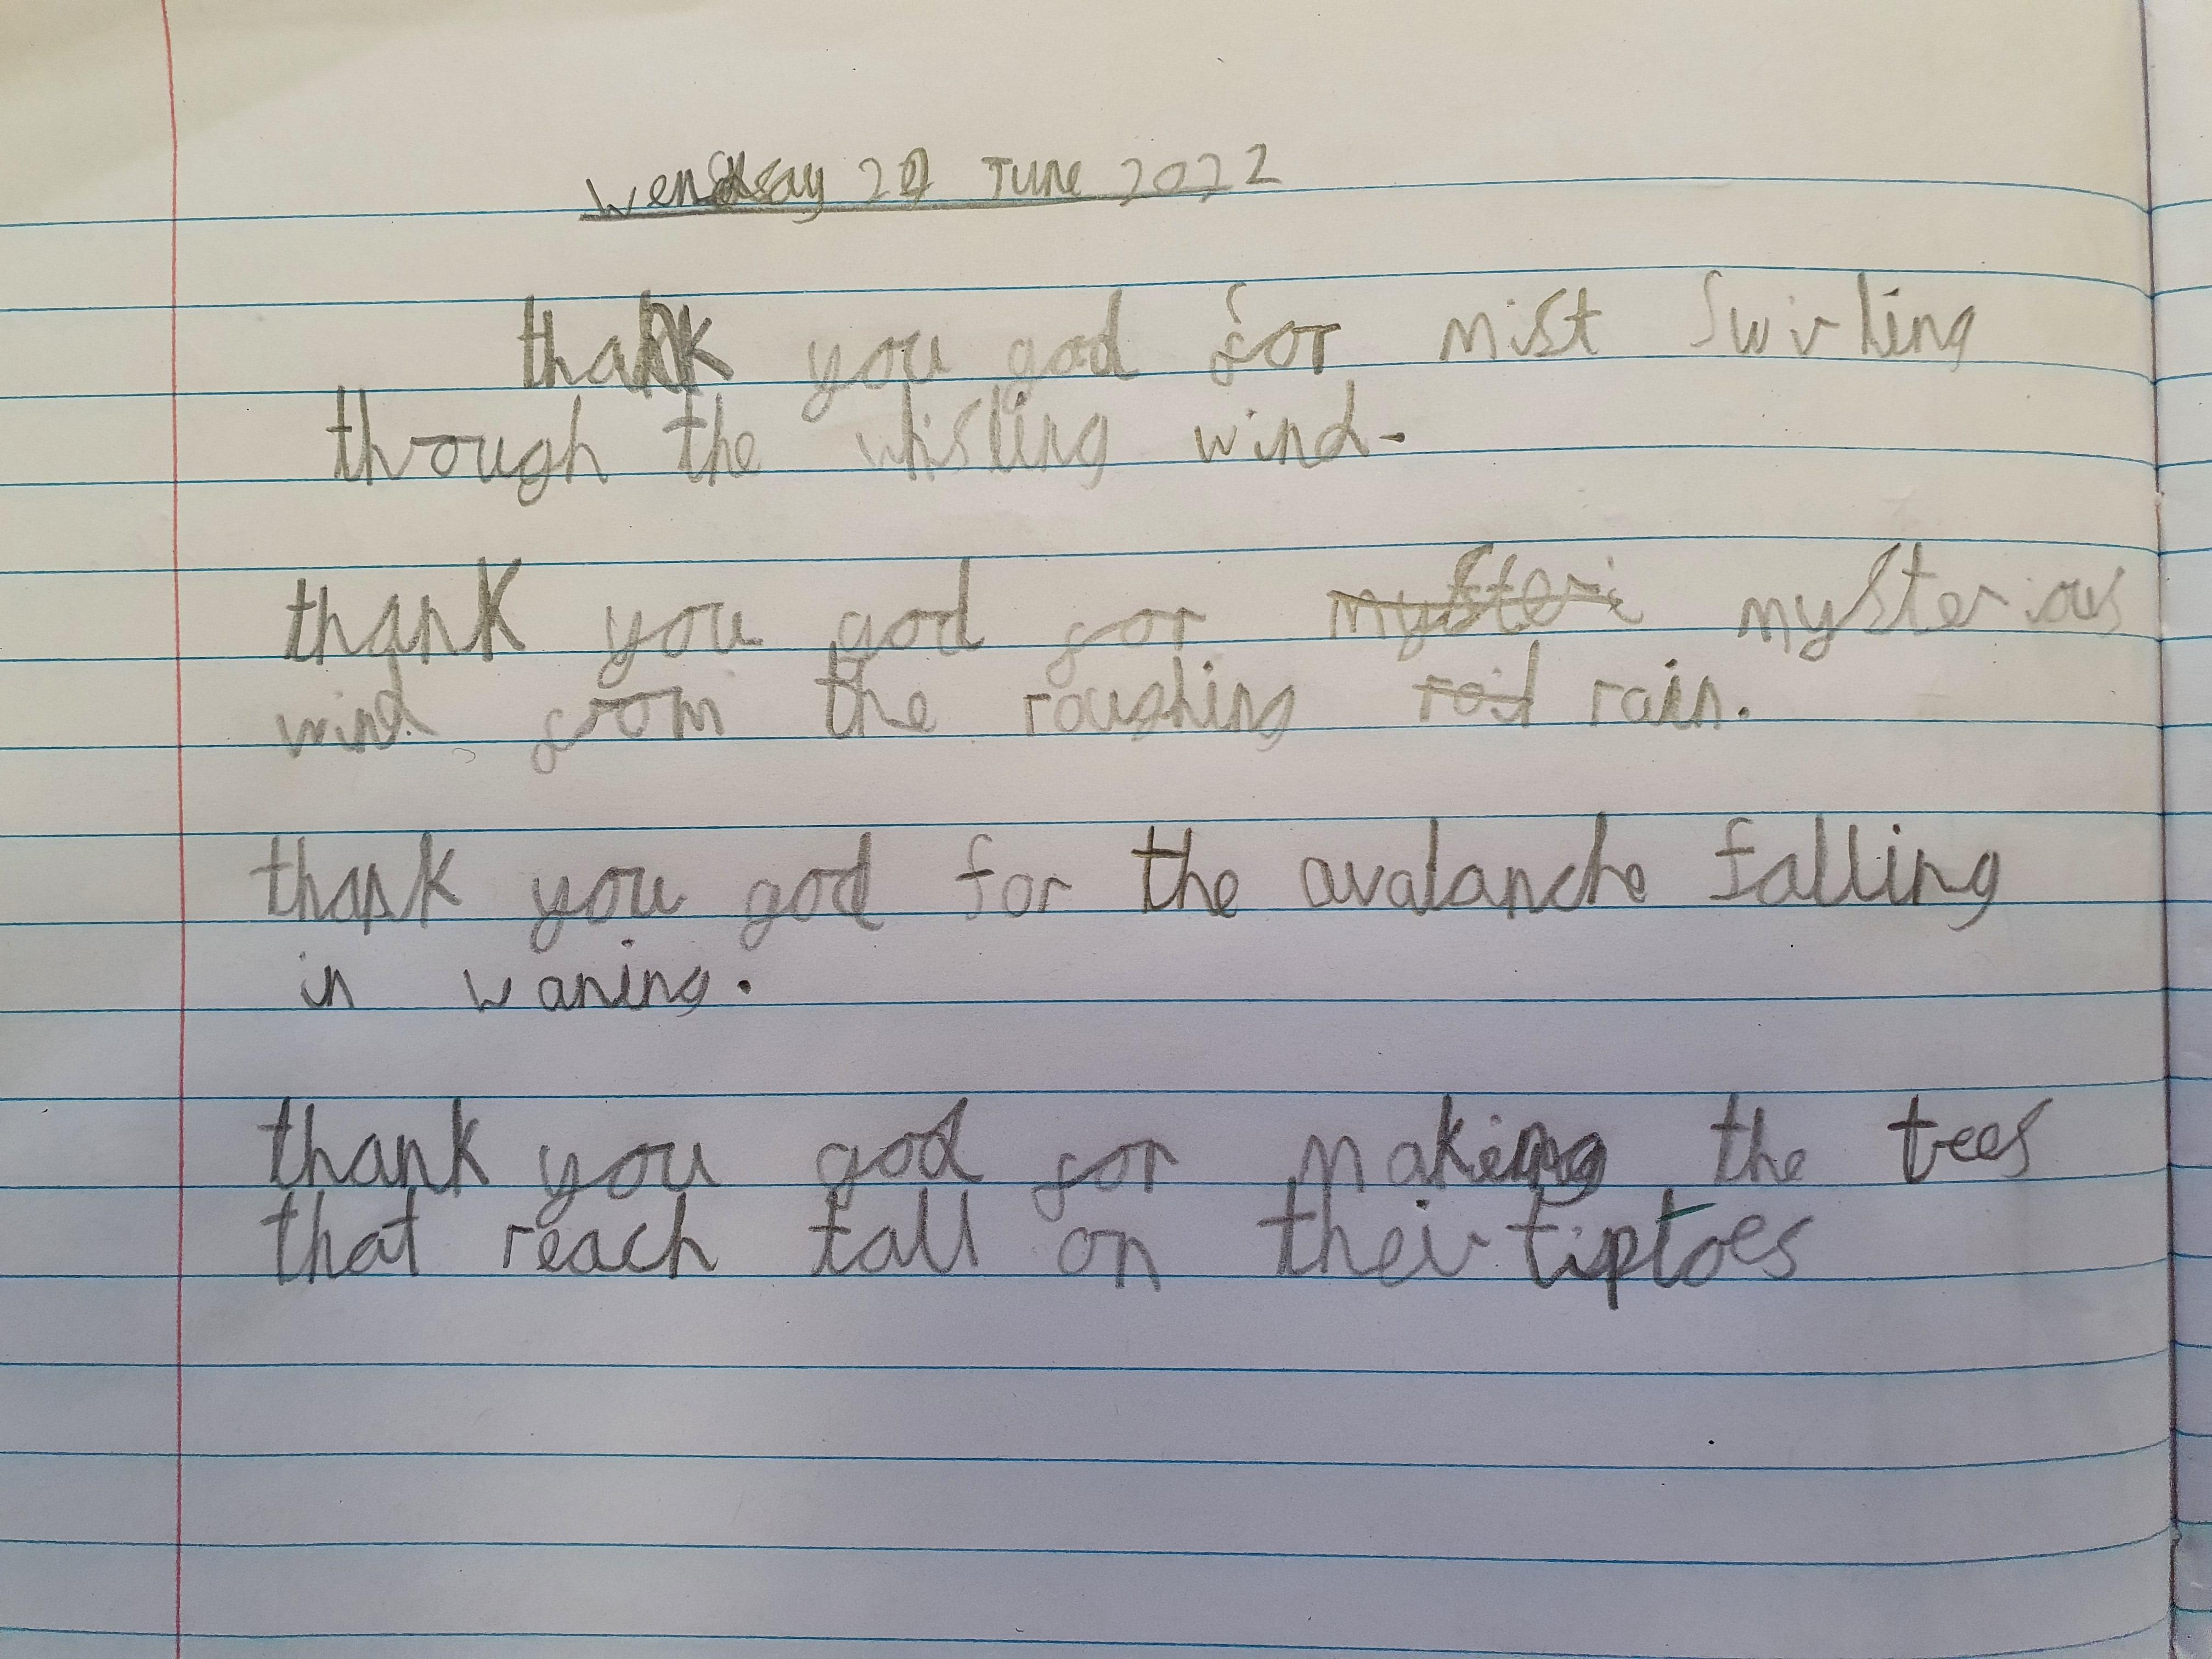 Wensday 29 June 2022
thank you god for mist swirling
through the whisling wind.
thank you god for mysteri mysterious
wind from the roughing rain.
thank you god for the avalanche falling
in waning.
thank you god for making the trees
that reach tall on their tiptoes